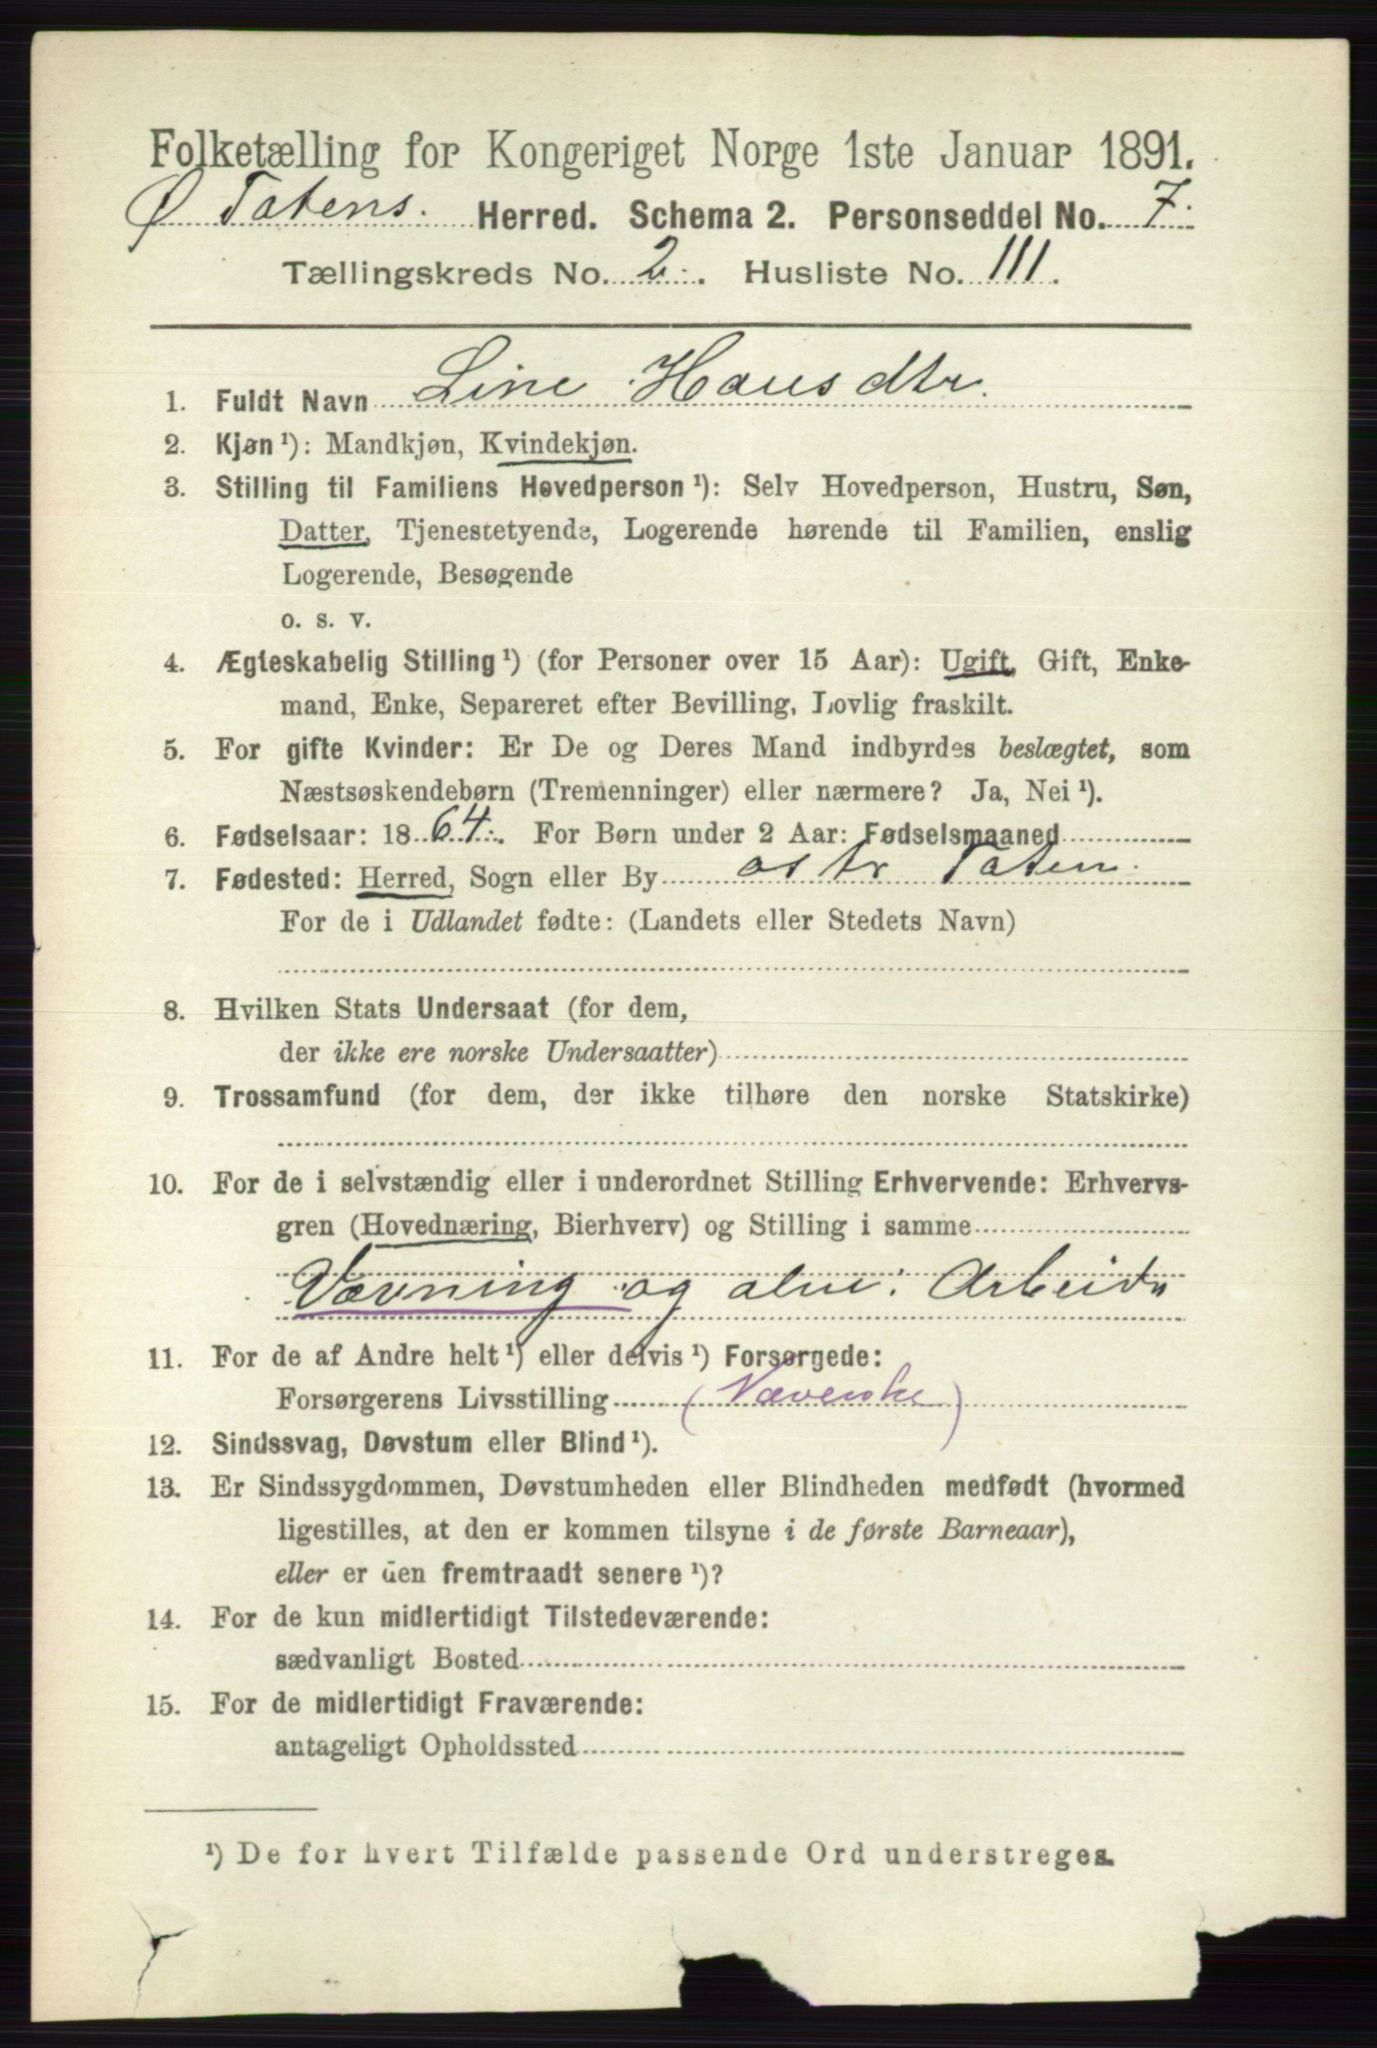 Folketælling for Kongeriget Norge 1ste Januar 1891.
Ø Totens. Herred. Schema 2. Personseddel No. 7.
Tællingskreds No. 2. Husliste No. 111.
1. Fuldt Navn Line Hansdtr.
2. Kjøn ¹): Mandkjøn, Kvindekjøn.
3. Stilling til Familiens Hovedperson ¹): Selv Hovedperson, Hustru, Søn,
Datter, Tjenestetyende, Logerende hørende til Familien, enslig
Logerende, Besøgende
o. s. v.
4. Ægteskabelig Stilling ¹) (for Personer over 15 Aar): Ugift, Gift, Enke-
mand, Enke, Separeret efter Bevilling, Lovlig fraskilt.
5. For gifte Kvinder: Er De og Deres Mand indbyrdes beslægtet, som
Næstsøskendebørn (Tremenninger) eller nærmere? Ja, Nei ¹).
6. Fødselsaar: 1864. For Børn under 2 Aar: Fødselsmaaned
7. Fødested: Herred, Sogn eller By østr Toten.
For de i Udlandet fødte: (Landets eller Stedets Navn)
8. Hvilken Stats Undersaat (for dem,
der ikke ere norske Undersaatter)
9. Trossamfund (for dem, der ikke tilhøre den norske Statskirke)
10. For de i selvstændig eller i underordnet Stilling Erhvervende: Erhvervs-
gren (Hovednæring, Bierhverv) og Stilling i samme
Vævning og alm. Arbeide
11. For de af Andre helt ¹) eller delvis ¹) Forsørgede:
Forsørgerens Livsstilling (Væverske)
12. Sindssvag, Døvstum eller Blind ¹).
13. Er Sindssygdommen, Døvstumheden eller Blindheden medfødt (hvormed
ligestilles, at den er kommen tilsyne i de første Barneaar),
eller er den fremtraadt senere ¹)?
14. For de kun midlertidigt Tilstedeværende:
sædvanligt Bosted
15. For de midlertidigt Fraværende:
antageligt Opholdssted
¹) De for hvert Tilfælde passende Ord understreges.